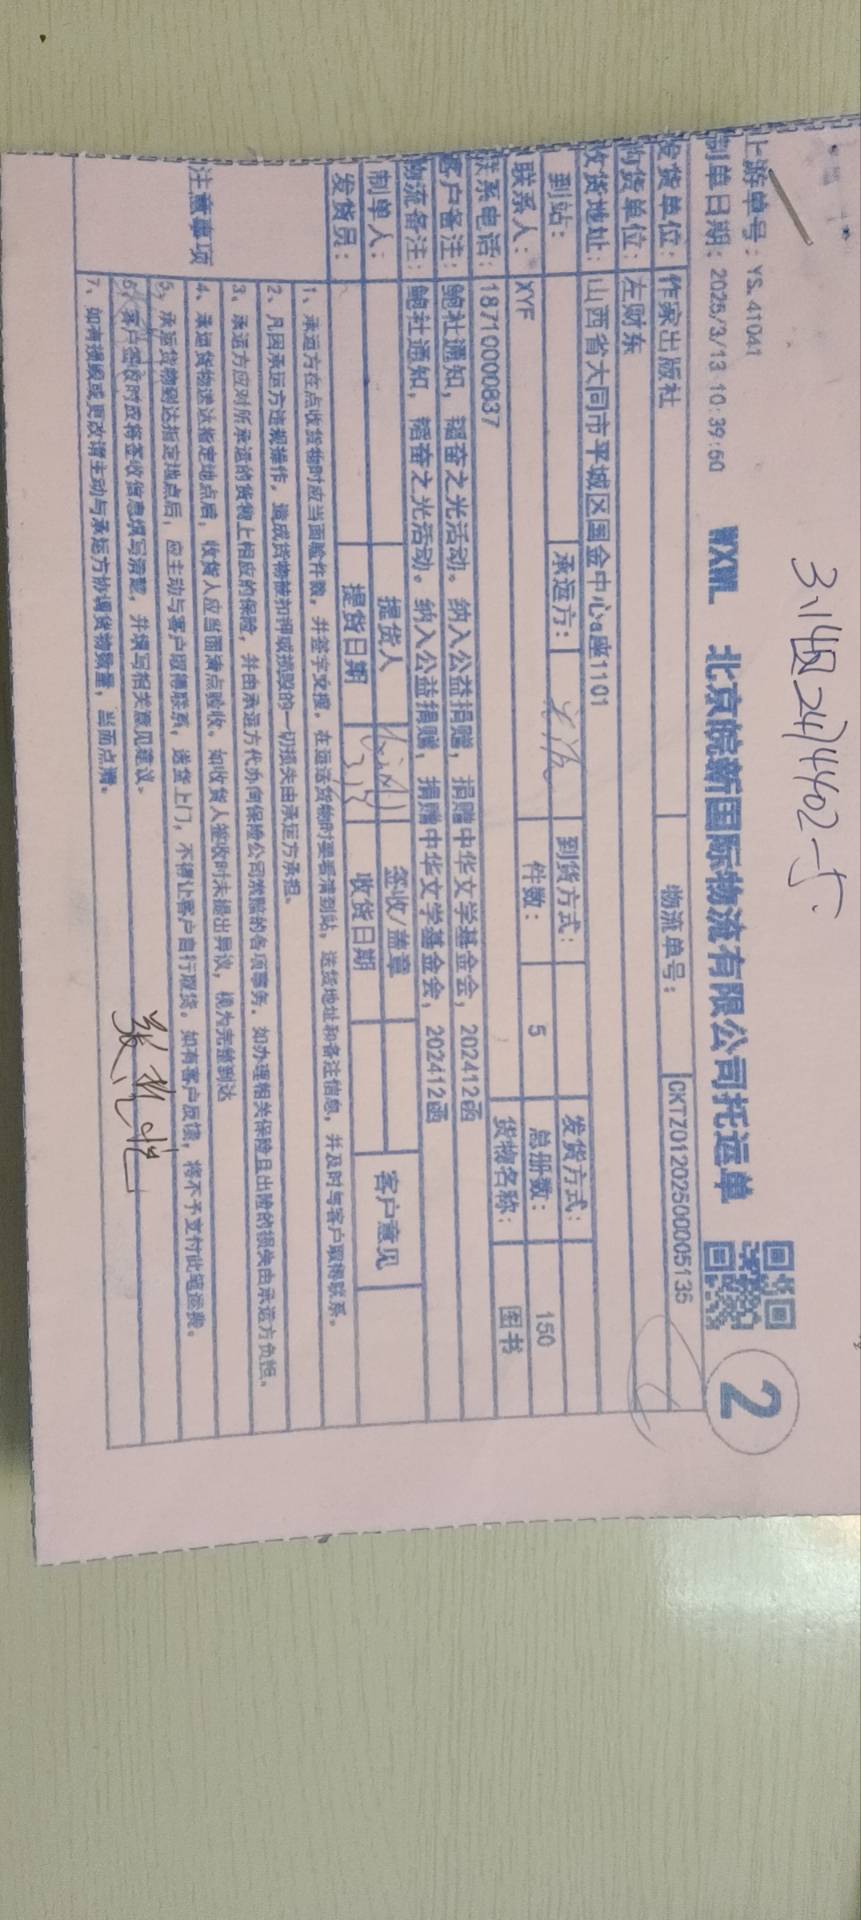 上游单号：YS.41041
制单日期：2025/3/13 10:39:50
WXWL 北京皖新国际物流有限公司托运单
2
发货单位：作家出版社 物流单号：CKTZ01202500005135
购货单位：左财东
收货地址：山西省大同市平城区国金中心a座1101
到站： 承运方： 到货方式： 发货方式：
联系人：XYF 件数：5 总册数：150
联系电话：18710000837 货物名称：图书
客户备注：鲍社通知，韬奋之光活动。纳入公益捐赠，捐赠中华文学基金会，202412函
物流备注：鲍社通知，韬奋之光活动。纳入公益捐赠，捐赠中华文学基金会，202412函
制单人： 提货人 签收/盖章 客户意见
发货员： 提货日期 收货日期
注意事项
1、承运方在点收货物时应当面验件数，并签字交接，在运送货物时要看清到站，送货地址和备注信息，并及时与客户取得联系。
2、凡因承运方违规操作，造成货物被扣押或损毁的一切损失由承运方承担。
3、承运方应对所承运的货物上相应的保险，并由承运方代办向保险公司索赔的各项事务。如办理相关保险且出险的损失由承运方负担。
4、承运货物送达指定地点后，收货人应当面清点验收。如收货人签收时未提出异议，视为完整到达
5、承运货物到达指定地点后，应主动与客户取得联系，送货上门，不得让客户自行取货。如有客户反馈，将不予支付此笔运费。
6、客户签收时应将签收信息填写清楚，并填写相关意见建议。
7、如有损毁或更改请主动与承运方协调货物数量，当面点清。